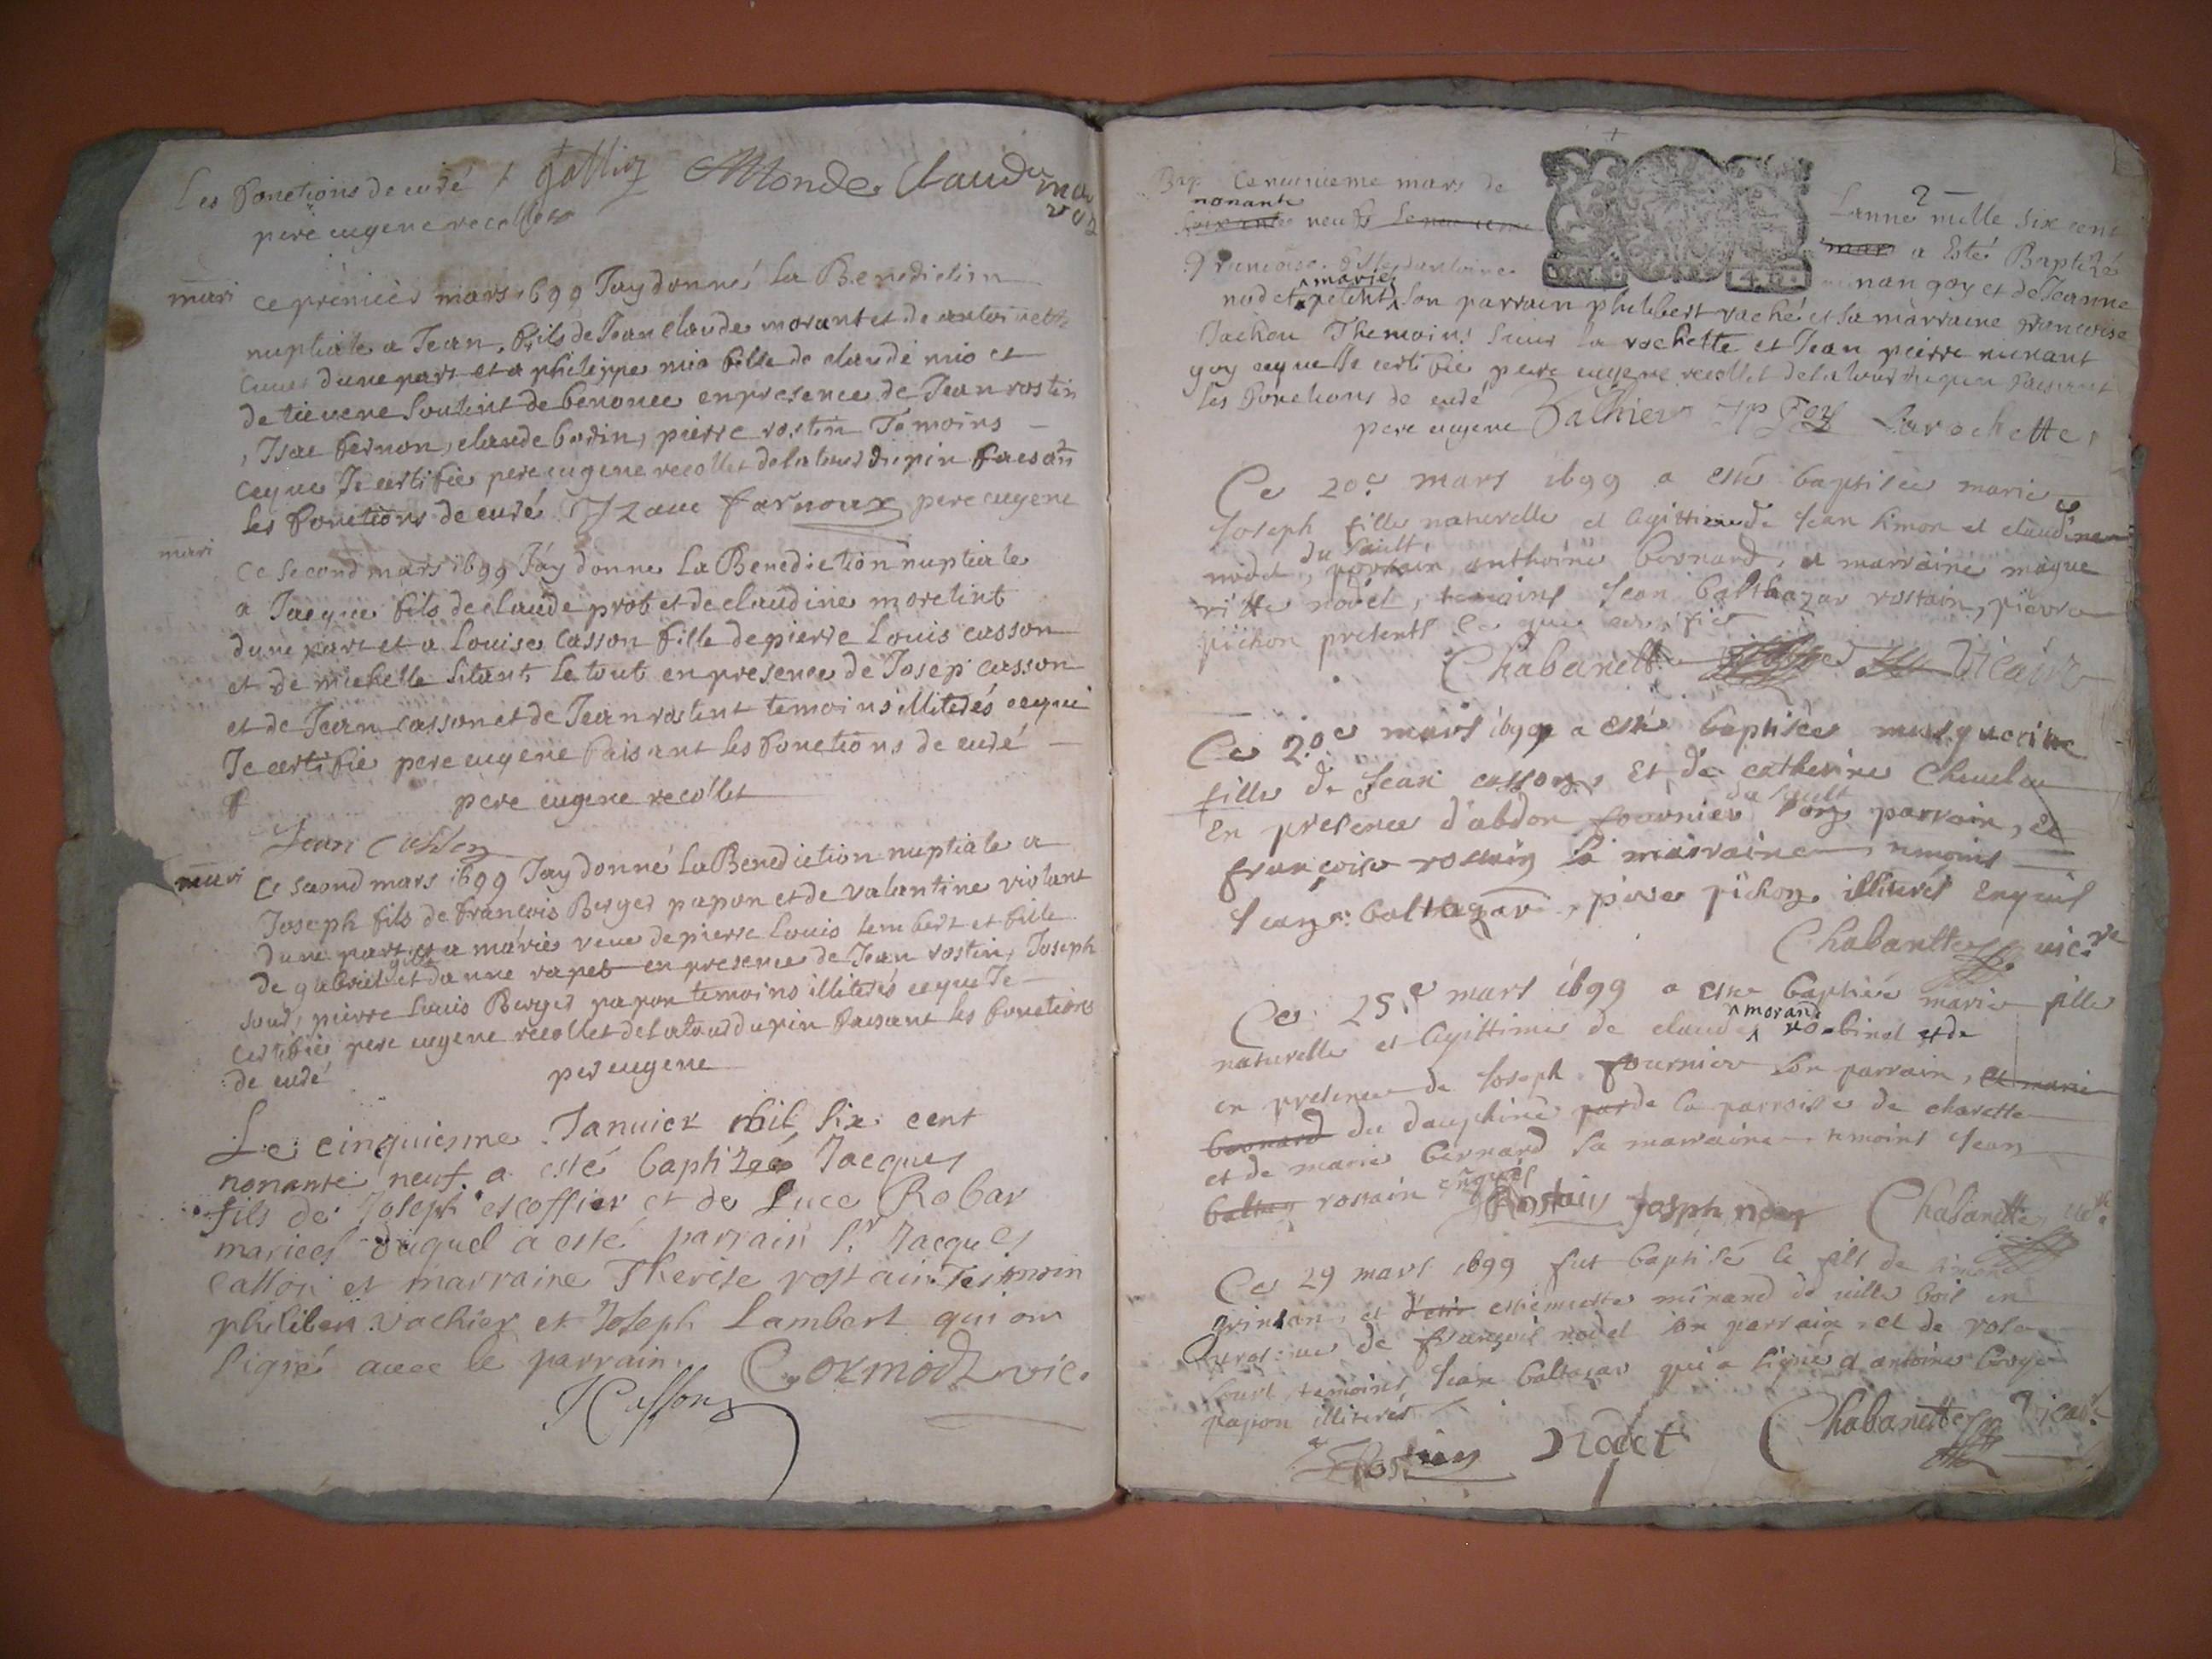 Les fonctions de curé
pere eugene recollet
mari
ce premier mars 1699 Jay donné La Benediction
nuptiale a Jean, fils de Jean claude morant et de antoinette
dune part et a philippe mio fille de claude mio et
de en presence de Jean rostin
, Isac fernon, claude bodin, pierre rostin Temoins
ceque Je certifie pere eugene recollet de latour du pin faesant
les fonctions de curé Izaac farnoux pere eugene
mari
Ce second mars 1699 Jay donne La Benediction nuptiale
a Jacque fils de claude prot et de claudine moretint
dune part et a Louise casson fille de pierre Louis casson
et de michelle Le tout en presence de Josep casson
et de Jean casson et de Jean rostint temoins illiterés ceque
Je certifie pere eugene faisant les fonctions de curé
pere eugene recollet
Jean Casson
mari
Ce second mars 1699 Jay donné La Benediction nuptiale a
Joseph fils de francois Berger papon et de valantine violant
dune part et a marie veue de pierre Louis lembert et fille
de gabriel et danne rapet en presence de Jean rostin, Joseph
pierre Louis Berger papon temoins illiterés ceque Je
certifie pere eugene recollet de latour dupin faisant les fonctions
de curé per eugene
Le cinquiesme Januier mil six cent
nonante neuf a esté baptizé Jacques
fils de Joseph escoffier et de Luce Robar
mariees duquel a esté parrain Sr Jacques
Casson et marraine Therese rostain Tesmoin
philibert vachier et Joseph Lambert qui ont
signé auec le parrain. Cormod vic.
JCasson
Bap Ce mars de Lanne mille six cent
nonante
neuf mars a Esté Baptizé
francoise fille dantoine goy et de Jeanne
marie
nodet son parrain philibert vaché et sa marraine francoise
Themoins sieur la rochette et Jean pierre
goy ceque Je certifie pere eugene recollet de latour du pin faisant
les fonctions de curé
pere eugene Vachier Larochette
Ce 20e mars 1699 a esté baptisée marie
Joseph fille naturelle et legittime de Jean simon et claudine
du sault
nodet, parrain anthoine bernard, et marraine margue
ritte nodet, temoins Jean balthazar rostain, pierre
pichon presents ce que certifie
Chabanette vicaire
Ce 20e mars 1699 a esté baptisée
fille de Jean casson, et de catherine
du sault
en presence d'abdon fournier son parrain, et
françoise rostain sa marraine temoins
Jean baltazar, pierre pichon illiterés enquis
Chabanette vicre
Ce 25e mars 1699 a esté baptisée marie fille
morand
naturelle et legittime de claude robinet et de
en presence de Joseph fournier son parrain, et marie
bernard du dauphiné de la parroisse de charette
et de marie bernard sa marraine temoins Jean
baltaz rostain enquis
Rostain Joseph Chabanette vic
Ce 29 mars 1699 fut baptisé le fils de
et estiennette minand de
de françois nodet son parrain, et de rose
temoins Jean baltazar qui a signé et antoine berge
papon illiterés
Rostain Nodet Chabanette vicaire